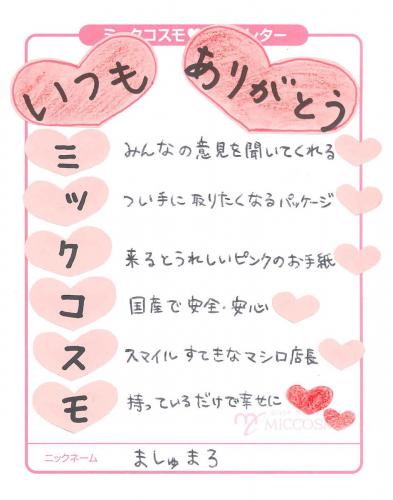 ミックコスモ
レター
いつも ありがとう
ミ みんなの意見を聞いてくれる
ッ つい手に取りたくなるパッケージ
ク 来るとうれしいピンクのお手紙
コ 国産で安全・安心
ス スマイルすてきなマシロ店長
モ 持っているだけで幸せに
MICCOS
ニックネーム ましゅまろ